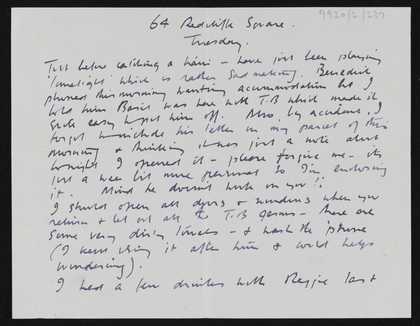 9920/2/237
64 Redcliffe Square.
Tuesday.
Just before catching a train - have just been playing
'Limelight' which is rather sad making. Benedict
phoned this morning wanting accommodation but I
told him Basil was here with T.B which made it
quite easy to put him off. Also, by accident, I
forgot to include his letter in my parcel of this
morning & thinking it was just a note about
tonight I opened it - please forgive me - its
just a wee bit more personal so I'm enclosing
it. Mind he doesn't lurk on you!!
I should open all doors & windows when you
return & let out all the T.B germs - there are
some very dirty hankies - & wash the 'phone
(I keep using it after him & can't help
wondering).
I had a few drinks with Reggie last